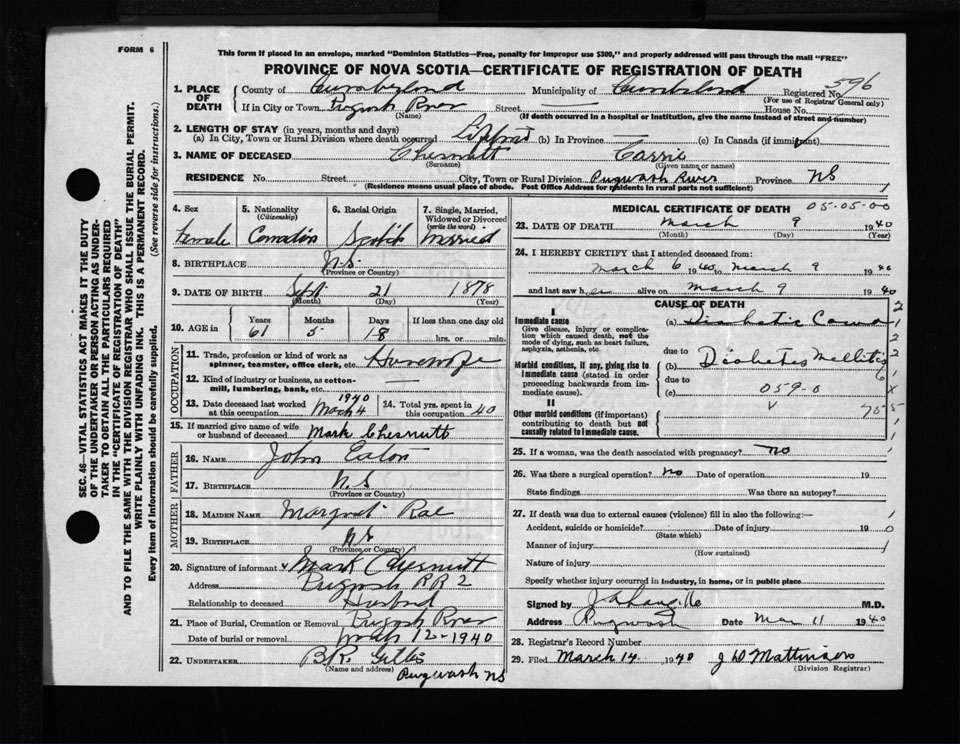 FORM 6
This form if placed in an envelope, marked "Dominion Statistics—Free, penalty for improper use $300," and properly addressed will pass through the mail "FREE"
PROVINCE OF NOVA SCOTIA—CERTIFICATE OF REGISTRATION OF DEATH
596
1. PLACE OF DEATH
County of Cumberland Municipality of Cumberland Registered No.
(For use of Registrar General only)
If in City or Town Pugwash River Street House No.
(Name) (If death occurred in a hospital or institution, give the name instead of street and number)
2. LENGTH OF STAY (in years, months and days)
(a) In City, Town or Rural Division where death occurred (b) In Province (c) In Canada (if immigrant)
3. NAME OF DECEASED Chesnutt Carrie
(Surname) (Given name or names)
RESIDENCE No. Street City, Town or Rural Division Pugwash River Province NS
(Residence means usual place of abode. Post Office Address for residents in rural parts not sufficient)
4. Sex
Female
5. Nationality
(Citizenship)
Canadian
6. Racial Origin
Scotch
7. Single, Married, Widowed or Divorced
(write the word)
Married
8. BIRTHPLACE N.S.
(Province or Country)
9. DATE OF BIRTH Sept 21 1878
(Month) (Day) (Year)
10. AGE in
Years Months Days If less than one day old
61 5 18 hrs. or min.
OCCUPATION
11. Trade, profession or kind of work as spinner, teamster, office clerk, etc. Housewife
12. Kind of industry or business, as cotton-mill, lumbering, bank, etc. —
13. Date deceased last worked at this occupation 1940 March 4
14. Total yrs. spent in this occupation 40
15. If married give name of wife or husband of deceased Mark Chesnutt
FATHER
16. NAME John Eaton
17. BIRTHPLACE N.S
(Province or Country)
MOTHER
18. MAIDEN NAME Margret Rae
19. BIRTHPLACE N.S
(Province or Country)
20. Signature of informant Mark Chesnutt
Address Pugwash RR 2
Relationship to deceased Husband
21. Place of Burial, Cremation or Removal Pugwash River
Date of burial or removal March 12-1940
22. UNDERTAKER B.R. Gillis
(Name and address)
Pugwash NS
MEDICAL CERTIFICATE OF DEATH 05-05-00
23. DATE OF DEATH March 9 1940
(Month) (Day) (Year)
24. I HEREBY CERTIFY that I attended deceased from:
March 6 1940 to March 9 1940
and last saw her alive on March 9 1940
CAUSE OF DEATH
I
Immediate cause
Give disease, injury or complication which caused death, not the mode of dying, such as heart failure, asphyxia, asthenia, etc.
(a) Diabetic Coma
due to
Morbid conditions, if any, giving rise to immediate cause (stated in order proceeding backwards from immediate cause).
(b) Diabetes Mellitis
due to
(c) 059-0
II
Other morbid conditions (if important) contributing to death but not causally related to immediate cause.
25. If a woman, was the death associated with pregnancy? no
26. Was there a surgical operation? no Date of operation 19
State findings Was there an autopsy?
27. If death was due to external causes (violence) fill in also the following:—
Accident, suicide or homicide? Date of injury 19
(State which)
Manner of injury
(How sustained)
Nature of injury
Specify whether injury occurred in industry, in home, or in public place
Signed by M.D.
Address Pugwash Date Mar 11 1940
28. Registrar's Record Number
29. Filed March 14 1940 J W Mattinson
(Division Registrar)
SEC. 46—VITAL STATISTICS ACT MAKES IT THE DUTY
OF THE UNDERTAKER OR PERSON ACTING AS UNDER-
TAKER TO OBTAIN ALL THE PARTICULARS REQUIRED
IN THE "CERTIFICATE OF REGISTRATION OF DEATH"
AND TO FILE THE SAME WITH THE DIVISION REGISTRAR WHO SHALL ISSUE THE BURIAL PERMIT.
WRITE PLAINLY WITH UNFADING INK. THIS IS A PERMANENT RECORD.
Every item of information should be carefully supplied. (See reverse side for instructions.)